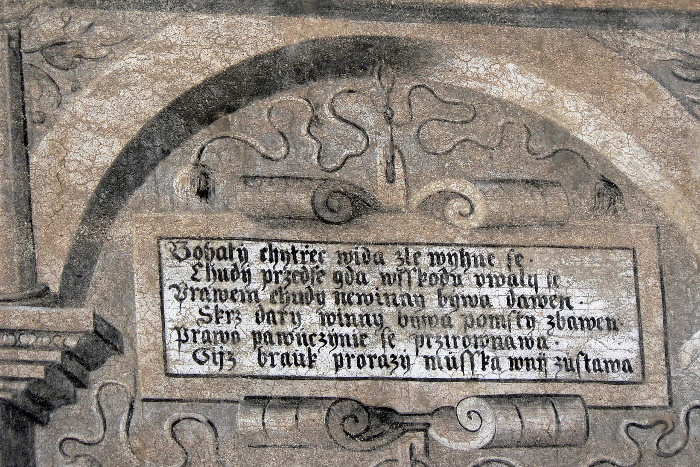 Bohatý chytřec wida zle wyhne se.
Chudý przedse gda w sskodu vwalý se
Prawem chudý newinny býwa dawen.
Skrz dary winny býwa pomstý zbawen.
Prawo pawuczynie se przirownawa.
Gijz brauk prorazý musska wnij zustawa